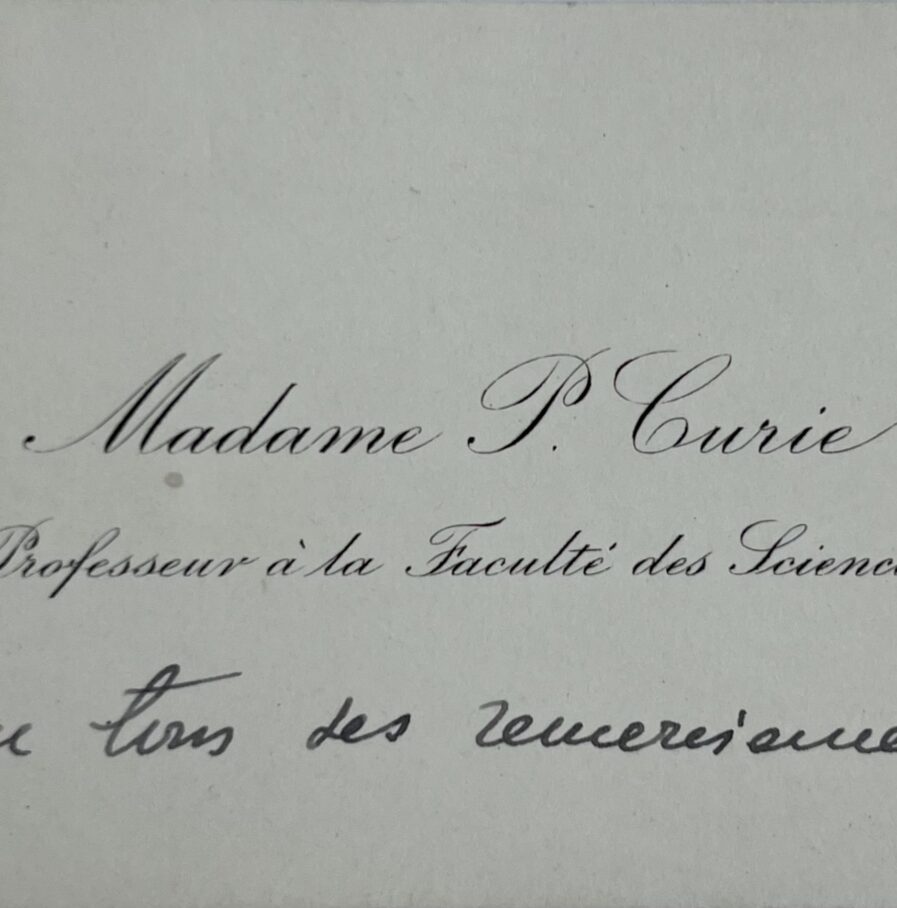 Madame P. Curie
Professeur à la Faculté des Scienc
tous ses remercieme